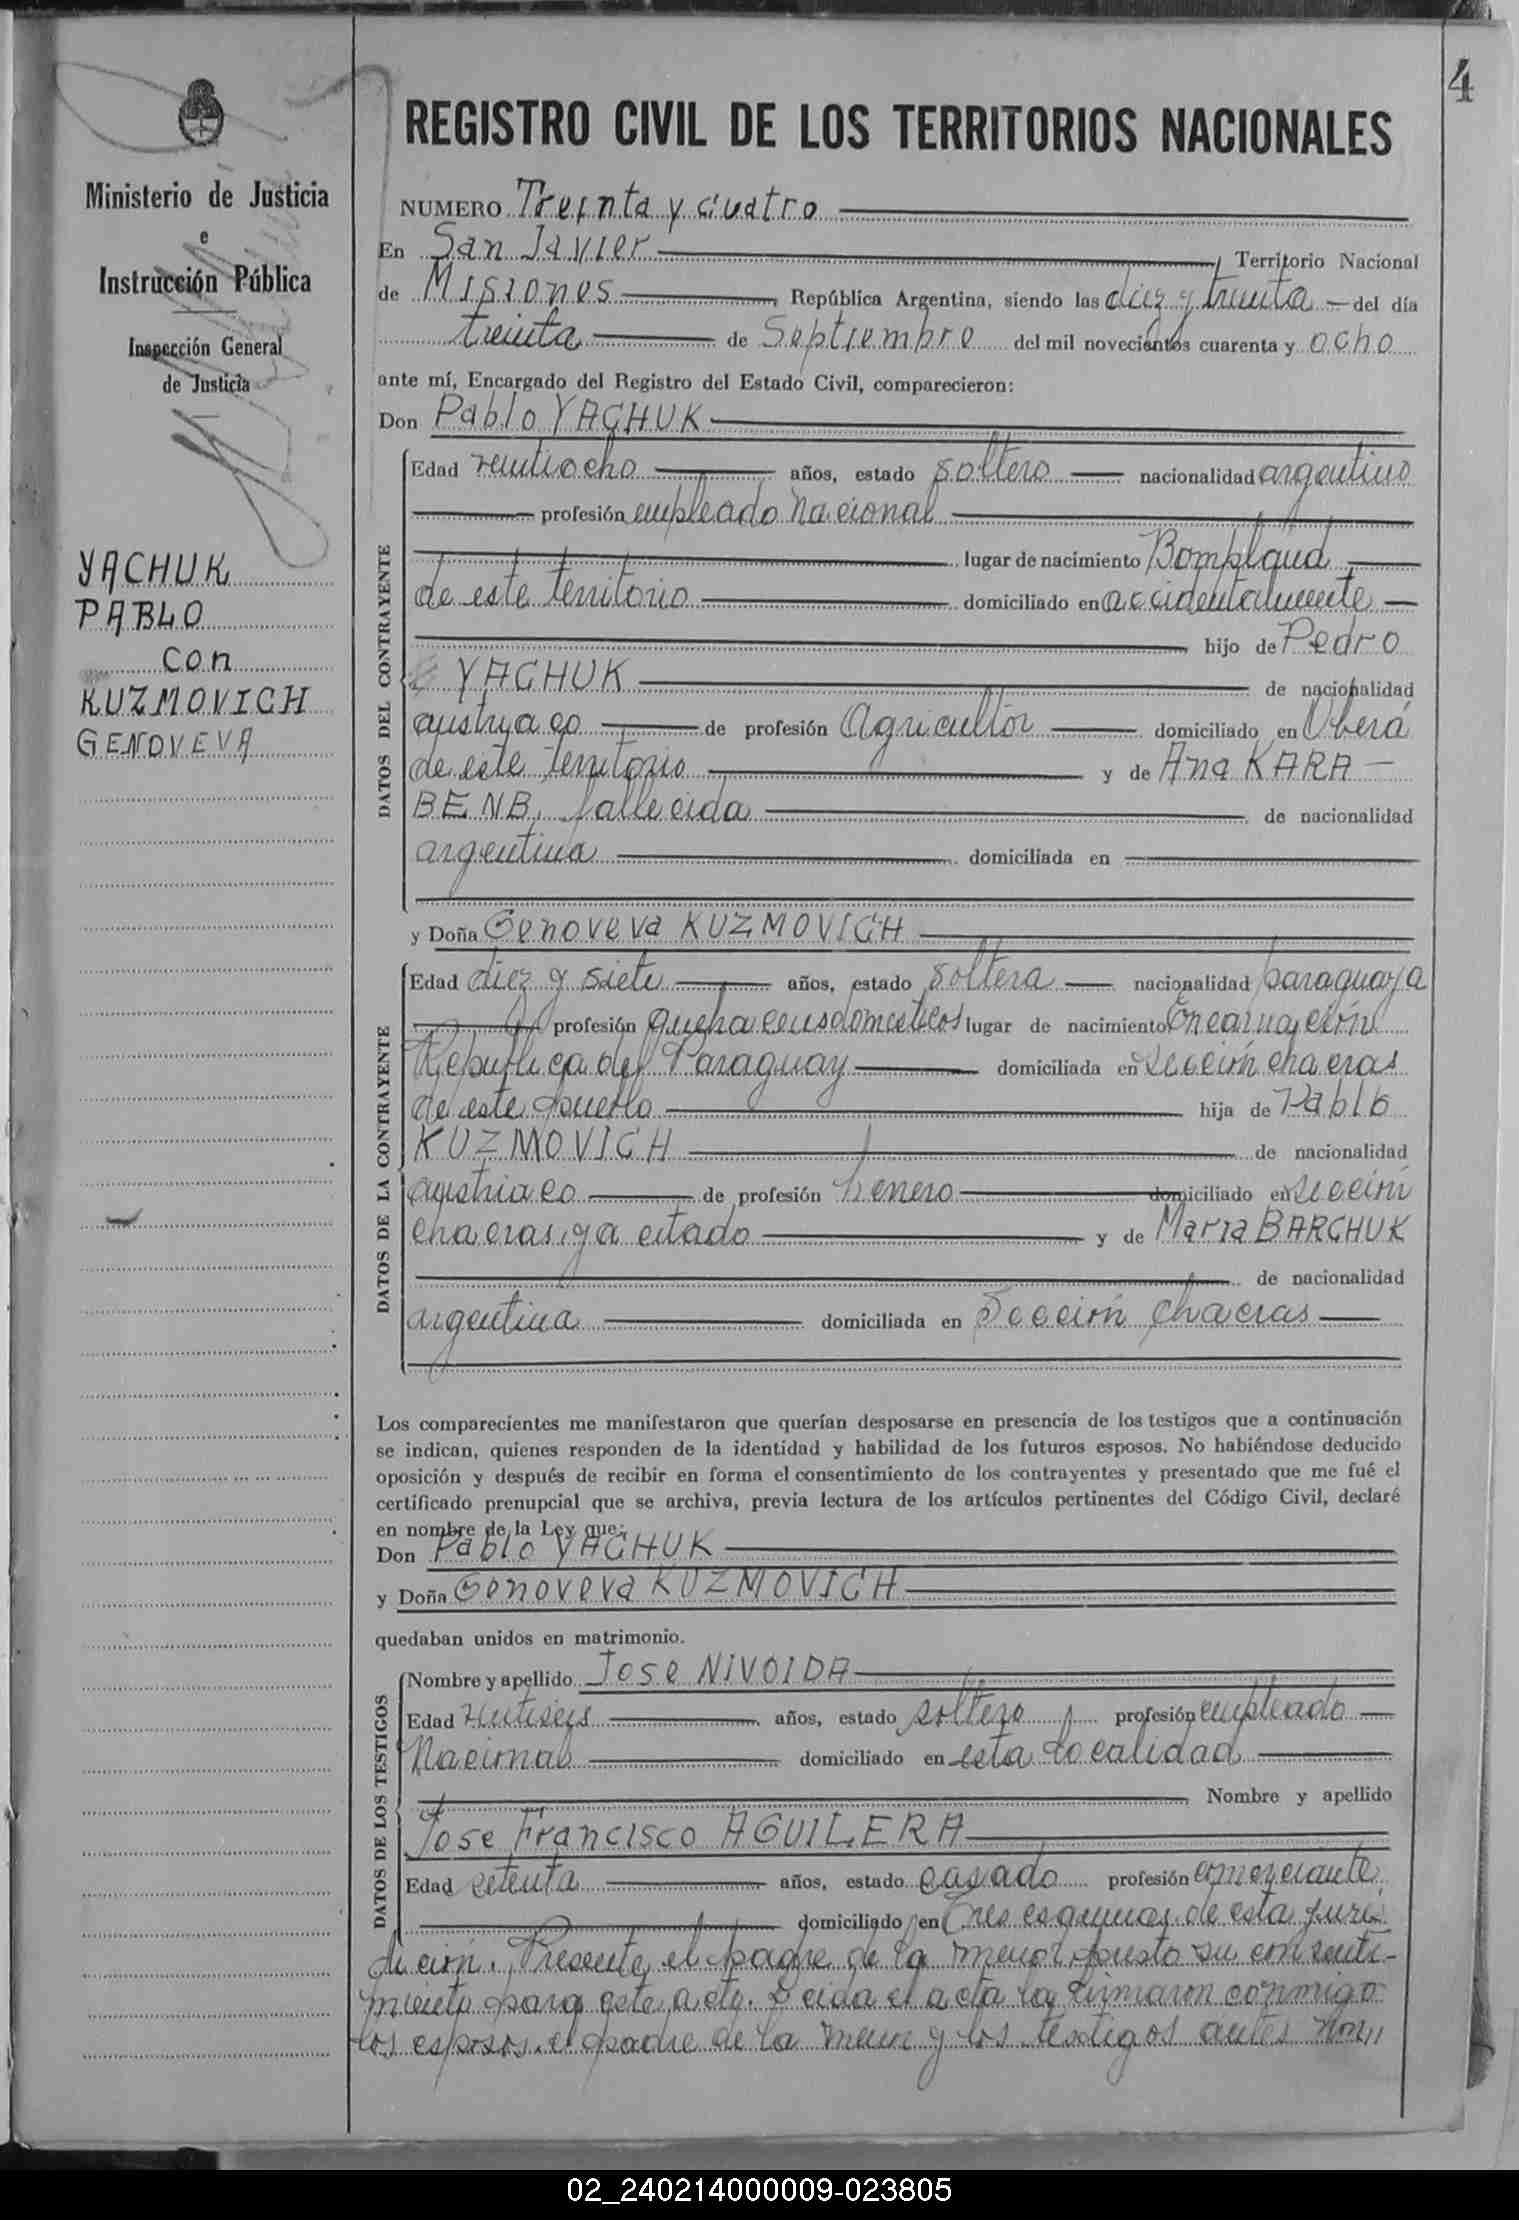 4
REGISTRO CIVIL DE LOS TERRITORIOS NACIONALES
Ministerio de Justicia
e
Instrucción Pública
Inspección General
de Justicia
YACHUK
PABLO
con
KUZMOVICH
GENOVEVA
NUMERO Treinta y cuatro
En San Javier Territorio Nacional
de Misiones República Argentina, siendo las diez y treinta del día
treinta de Septiembre del mil novecientos cuarenta y ocho
ante mí, Encargado del Registro del Estado Civil, comparecieron:
Don Pablo YACHUK
DATOS DEL CONTRAYENTE
Edad veintiocho años, estado soltero nacionalidad argentino
profesión empleado Nacional
lugar de nacimiento Bompland
de este territorio domiciliado en accidentalmente
hijo de Pedro
YACHUK de nacionalidad
austriaco de profesión Agricultor domiciliado en Oberá
de este territorio y de Ana KARA-
BENB, fallecida de nacionalidad
argentina domiciliada en
y Doña Genoveva KUZMOVICH
DATOS DE LA CONTRAYENTE
Edad diez y siete años, estado soltera nacionalidad paraguaya
profesión quehaceres domesticos lugar de nacimiento Encarnación
Republica del Paraguay domiciliada en Sección chacras
de este pueblo hija de Pablo
KUZMOVICH de nacionalidad
austriaco de profesión herrero domiciliado en Sección
chacras, ya citado y de Maria BARCHUK
de nacionalidad
argentina domiciliada en Sección chacras
Los comparecientes me manifestaron que querían desposarse en presencia de los testigos que a continuación
se indican, quienes responden de la identidad y habilidad de los futuros esposos. No habiéndose deducido
oposición y después de recibir en forma el consentimiento de los contrayentes y presentado que me fué el
certificado prenupcial que se archiva, previa lectura de los artículos pertinentes del Código Civil, declaré
en nombre de la Ley que:
Don Pablo YACHUK
y Doña Genoveva KUZMOVICH
quedaban unidos en matrimonio.
DATOS DE LOS TESTIGOS
Nombre y apellido Jose NIVOIDA
Edad veintiseis años, estado soltero profesión empleado
Nacional domiciliado en esta localidad
Nombre y apellido
Jose Francisco AGUILERA
Edad setenta años, estado casado profesión comerciante
domiciliado en Tres esquinas de esta juris-
dicción. Presente el padre de la menor presto su consenti-
miento para este acto. Leida el acta la firmaron conmigo
los esposos, el padre de la menor y los testigos antes nom,,
02_240214000009-023805